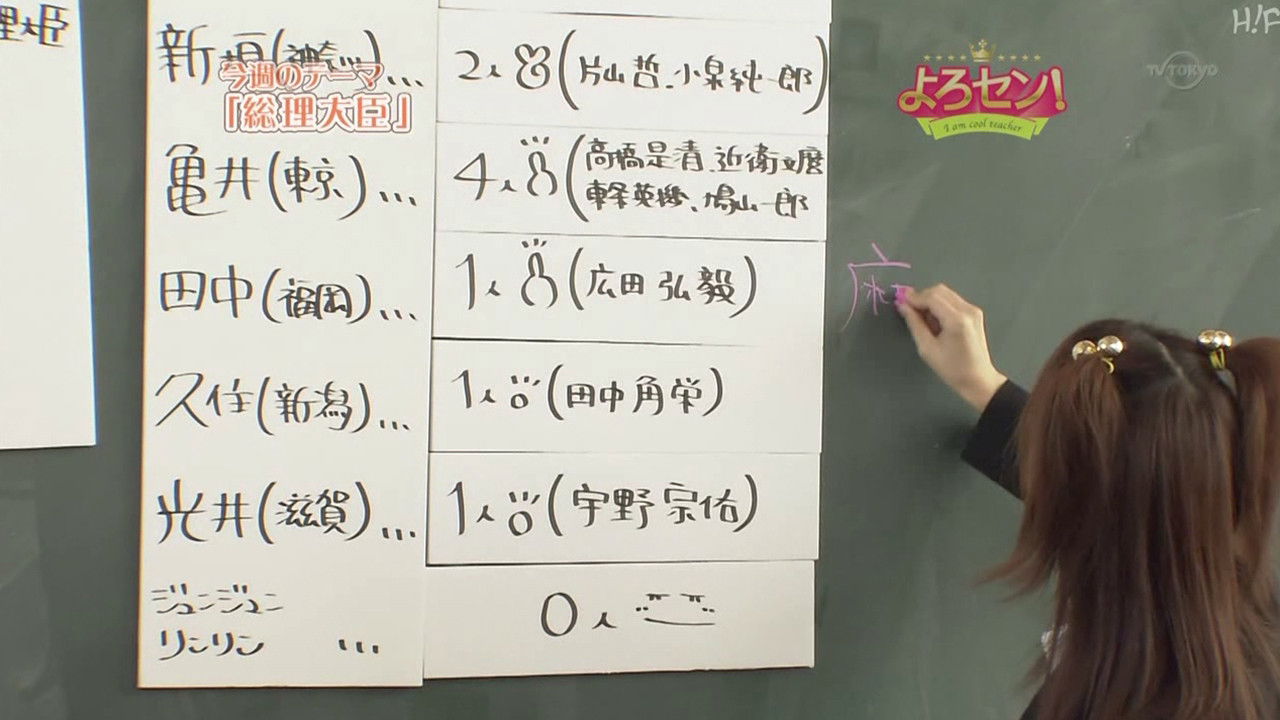 理大臣
H!F
TV TOKYO
よろセン!
I am cool teacher
今週のテーマ
「総理大臣」
新垣(神奈川)...
2人(片山 哲、小泉純一郎)
亀井(東京)...
4人(高橋是清、近衛文麿
東条英機、鳩山一郎
田中(福岡)...
1人(広田 弘毅)
久住(新潟)...
1人(田中 角栄)
光井(滋賀)...
1人(宇野 宗佑)
ジュンジュン
リンリン ...
0人